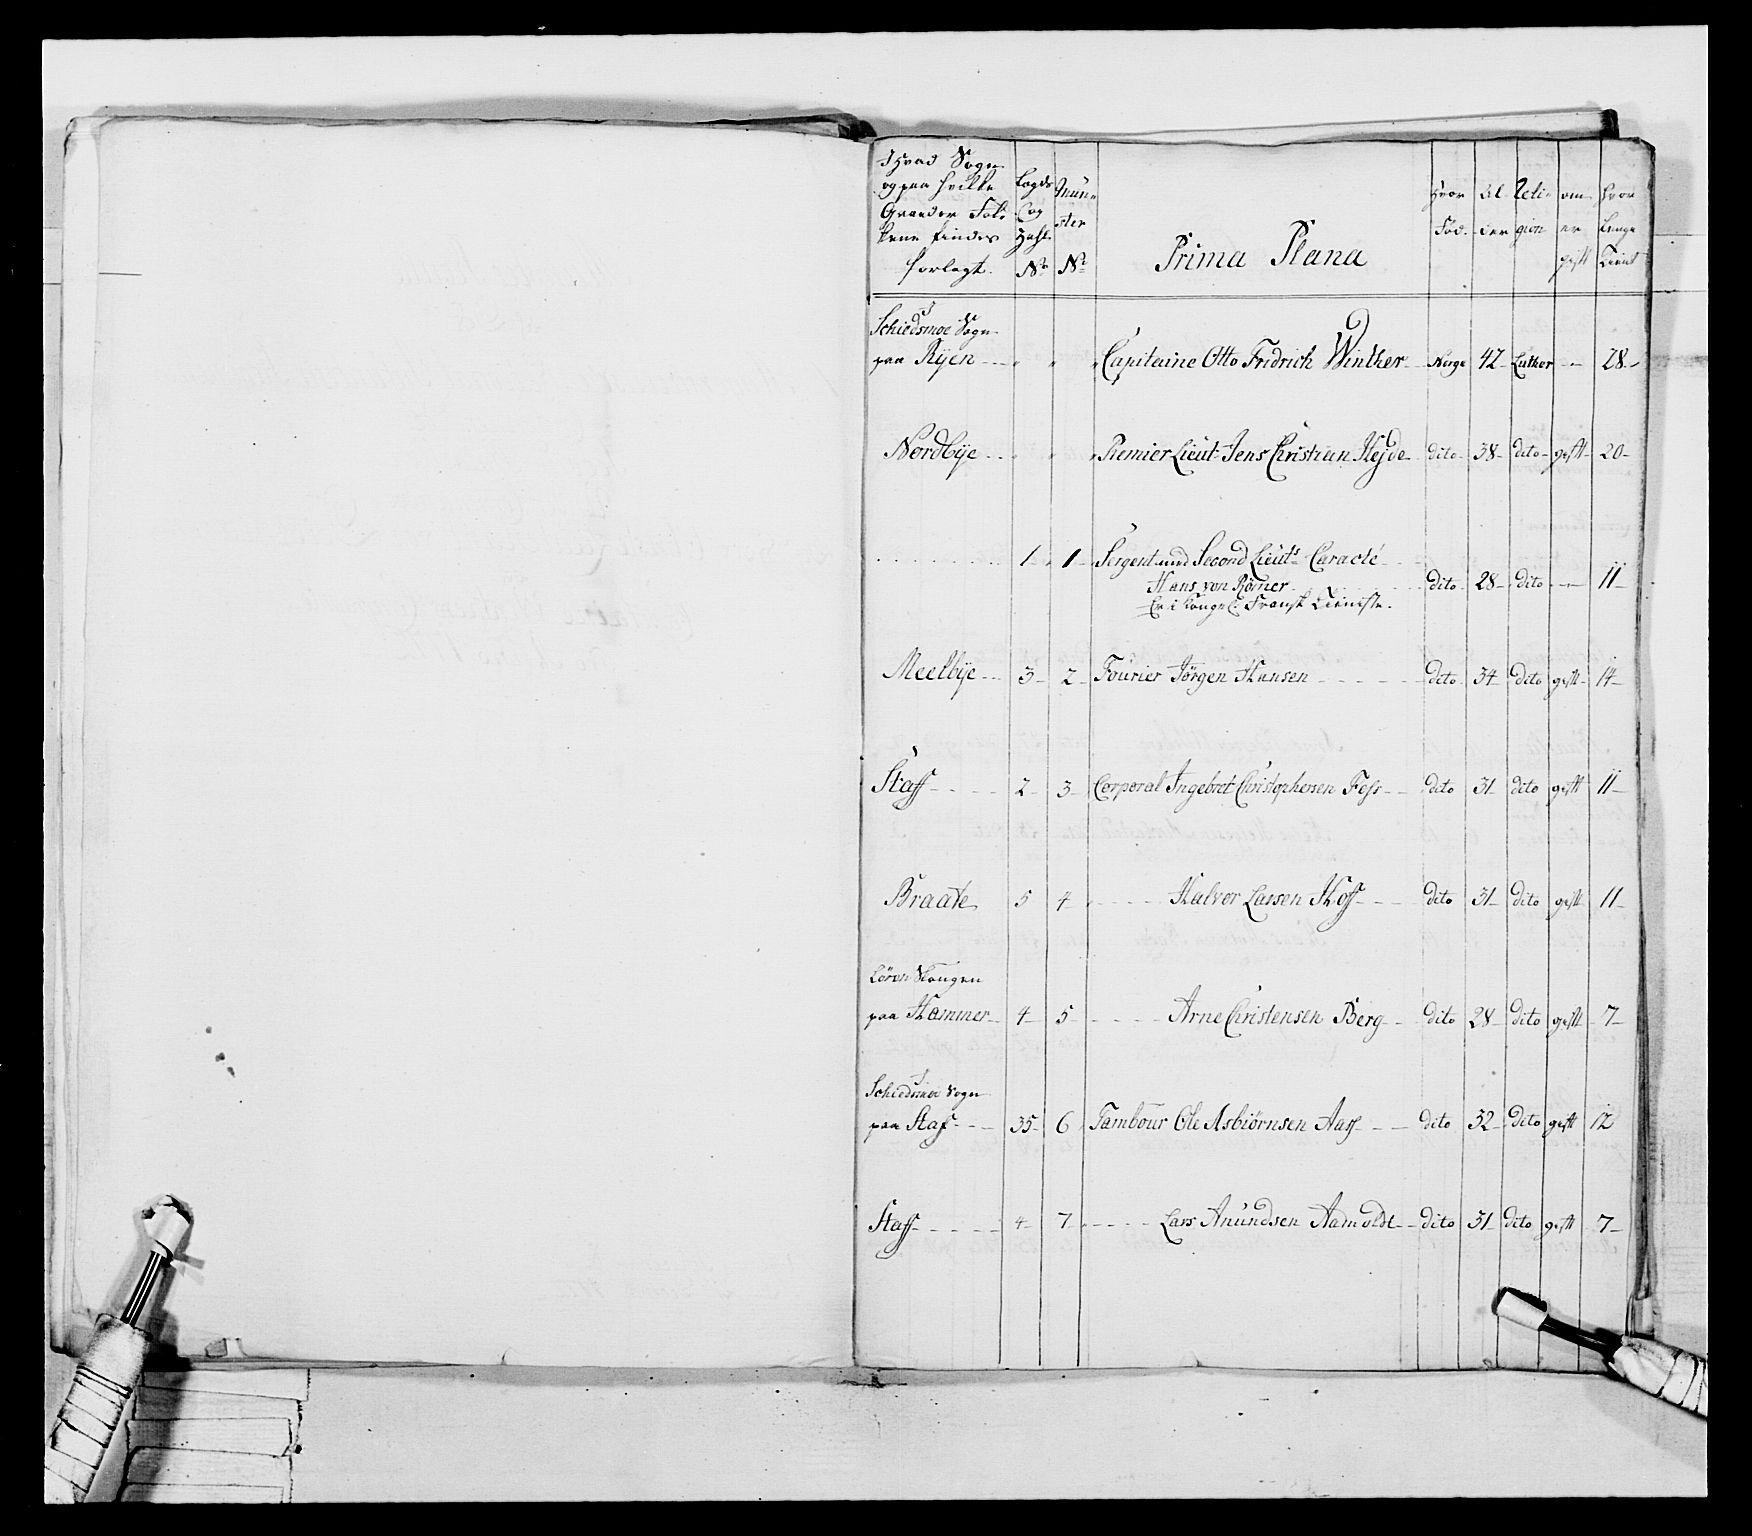 I Hvad Sogn
og paa hvilke
Gaarder Fol-
kene findes
forlagt.
Lægds
og
Zahl
No
Mün-
ster
No
Prima Plana
Hvor
Fød.
Al-
der
Reli-
gion
om
er
gift
Hvor
Lenge
Tient
Schiedsmoe Sogn
paa Ryen - - " " " Capitaine Otto Fridrich Winther - Norge 42 Luther - 28
Nordbye - - " " " Premier Lieut: Jens Christian Hejde - dito 38 dito gift 20
1 1 Sergent med Second Lieuts Caracté
Hans von Römer - dito 28 dito - 11
Er i Kongel: Fransk Tieniste.
Meelbye 3 2 Fourier Jørgen Hansen - dito 34 dito gift 14
Staff 2 3 Corporal Ingebret Christophersen Foss - dito 31 dito gift 11
Braate 5 4 - Halvor Larsen Hoff - dito 31 dito gift 11
Lørenskougen
paa Hammer 4 5 - Arne Christensen Berg - dito 28 dito gift 7
Schiedsmoe Sogn
paa Staf 35 6 Tambour Ole Asbiørnsen Aass - dito 32 dito gift 12
Staff 4 7 - Lars Anundsen - dito 31 dito gift 7